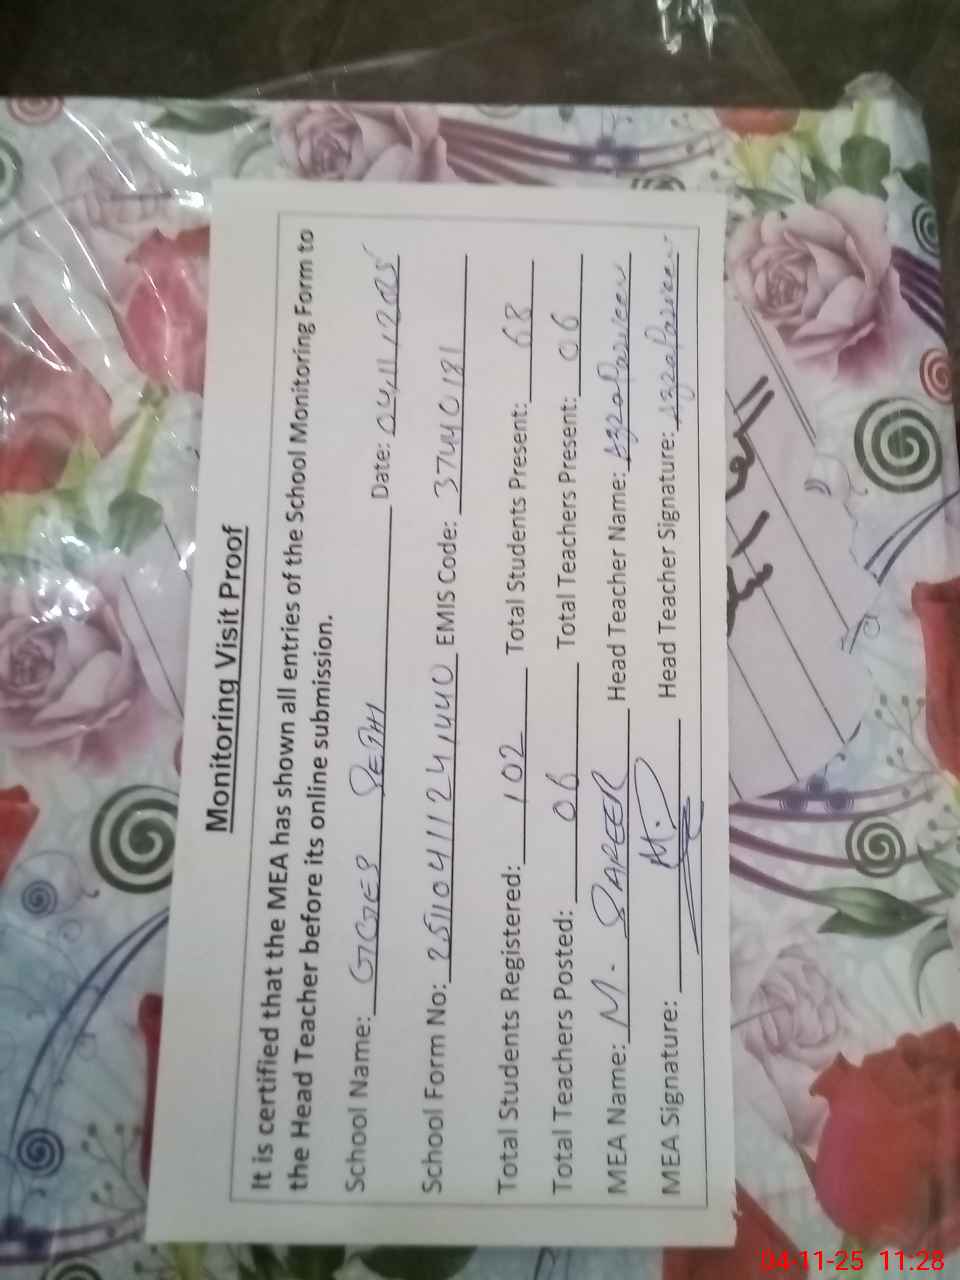 Monitoring Visit Proof
It is certified that the MEA has shown all entries of the School Monitoring Form to
the Head Teacher before its online submission.
School Name: GGES SETHI Date: 04/11/2025
School Form No: 251104111241440 EMIS Code: 37440181
Total Students Registered: 102 Total Students Present: 68
Total Teachers Posted: 06 Total Teachers Present: 06
MEA Name: M. SAFEER Head Teacher Name: Azra Parveen
MEA Signature: Head Teacher Signature: Azra Parveen
04-11-25 11:28